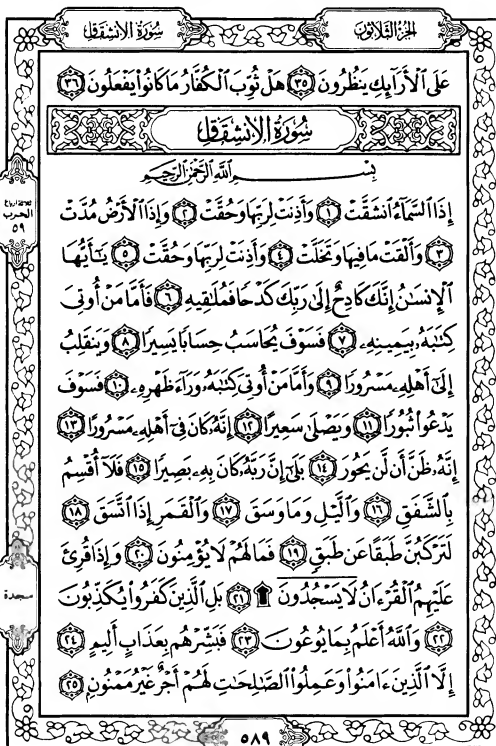 سُورَةُ الانشِقَاقِ
الجُزْءُ الثَّلَاثُونَ
عَلَى ٱلْأَرَآئِكِ يَنظُرُونَ ۝٣٥ هَلْ ثُوِّبَ ٱلْكُفَّارُ مَا كَانُوا۟ يَفْعَلُونَ ۝٣٦
سُورَةُ الانشِقَاقِ
بِسْمِ ٱللَّهِ ٱلرَّحْمَٰنِ ٱلرَّحِيمِ
إِذَا ٱلسَّمَآءُ ٱنشَقَّتْ ۝١ وَأَذِنَتْ لِرَبِّهَا وَحُقَّتْ ۝٢ وَإِذَا ٱلْأَرْضُ مُدَّتْ
۝٣ وَأَلْقَتْ مَا فِيهَا وَتَخَلَّتْ ۝٤ وَأَذِنَتْ لِرَبِّهَا وَحُقَّتْ ۝٥ يَٰٓأَيُّهَا
ٱلْإِنسَٰنُ إِنَّكَ كَادِحٌ إِلَىٰ رَبِّكَ كَدْحًا فَمُلَٰقِيهِ ۝٦ فَأَمَّا مَنْ أُوتِىَ
كِتَٰبَهُۥ بِيَمِينِهِۦ ۝٧ فَسَوْفَ يُحَاسَبُ حِسَابًا يَسِيرًا ۝٨ وَيَنقَلِبُ
إِلَىٰٓ أَهْلِهِۦ مَسْرُورًا ۝٩ وَأَمَّا مَنْ أُوتِىَ كِتَٰبَهُۥ وَرَآءَ ظَهْرِهِۦ ۝١٠ فَسَوْفَ
يَدْعُوا۟ ثُبُورًا ۝١١ وَيَصْلَىٰ سَعِيرًا ۝١٢ إِنَّهُۥ كَانَ فِىٓ أَهْلِهِۦ مَسْرُورًا ۝١٣
إِنَّهُۥ ظَنَّ أَن لَّن يَحُورَ ۝١٤ بَلَىٰٓ إِنَّ رَبَّهُۥ كَانَ بِهِۦ بَصِيرًا ۝١٥ فَلَآ أُقْسِمُ
بِٱلشَّفَقِ ۝١٦ وَٱلَّيْلِ وَمَا وَسَقَ ۝١٧ وَٱلْقَمَرِ إِذَا ٱتَّسَقَ ۝١٨
لَتَرْكَبُنَّ طَبَقًا عَن طَبَقٍ ۝١٩ فَمَا لَهُمْ لَا يُؤْمِنُونَ ۝٢٠ وَإِذَا قُرِئَ
عَلَيْهِمُ ٱلْقُرْءَانُ لَا يَسْجُدُونَ ۩ ۝٢١ بَلِ ٱلَّذِينَ كَفَرُوا۟ يُكَذِّبُونَ
۝٢٢ وَٱللَّهُ أَعْلَمُ بِمَا يُوعُونَ ۝٢٣ فَبَشِّرْهُم بِعَذَابٍ أَلِيمٍ ۝٢٤
إِلَّا ٱلَّذِينَ ءَامَنُوا۟ وَعَمِلُوا۟ ٱلصَّٰلِحَٰتِ لَهُمْ أَجْرٌ غَيْرُ مَمْنُونٍۭ ۝٢٥
ثلاثة ارباع
الحزب
٥٩
سجدة
٥٨٩